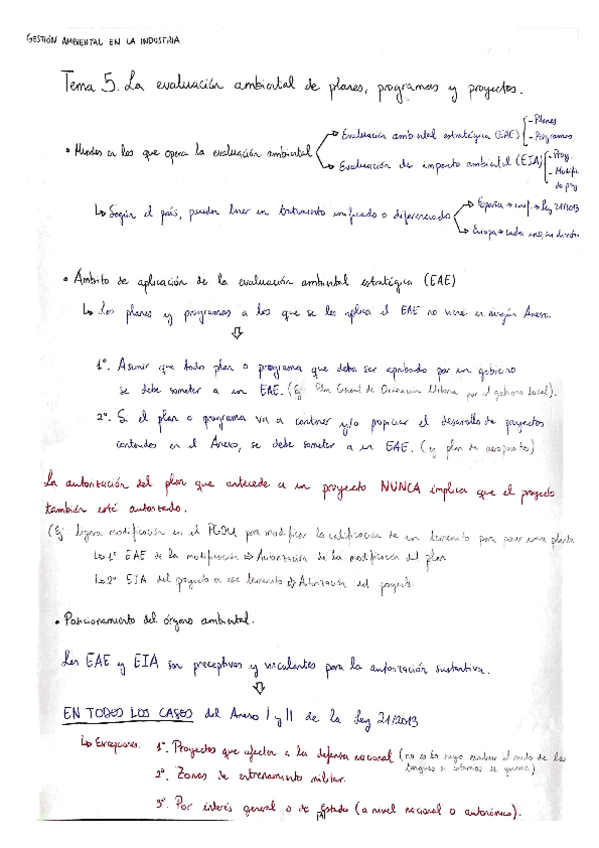 GESTIÓN AMBIENTAL EN LA INDUSTRIA
Tema 5. La evaluación ambiental de planes, programas y proyectos.
• Mundos en los que opera la evaluación ambiental
Evaluación ambiental estratégica (EAE) - Planes
- Programas
Evaluación de impacto ambiental (EIA) - Proy.
- Modific.
de proy
↳ Según el país, pueden tener un tratamiento unificado o diferenciado
España → unif. → Ley 21/2013
Europa → cada uno, su
• Ámbito de aplicación de la evaluación ambiental estratégica (EAE)
↳ Los planes y programas a los que se les aplica el EAE no viene en ningún Anexo.
1º. Asumir que todo plan o programa que deba ser aprobado por un gobierno
se debe someter a un EAE. (Ej: Plan General de Ordenación Urbana por el gobierno local).
2º. Si el plan o programa va a contener y/o propiciar el desarrollo de proyectos
contenidos en el Anexo, se debe someter a un EAE. (ej plan de aeropuerto)
La autorización del plan que antecede a un proyecto NUNCA implica que el proyecto
también esté autorizado.
(Ej: ligera modificación en el PGOU para modificar la calificación de un terrenito para poner una planta
↳ 1º EAE de la modificación ⇒ Autorización de la modificación del plan
↳ 2º EIA del proyecto en ese terrenito ⇒ Autorización del proyecto.
• Posicionamiento del órgano ambiental.
Las EAE y EIA son preceptivas y vinculantes para la autorización sustantiva.
EN TODOS LOS CASOS del Anexo I y II de la Ley 21/2013
↳ Excepciones: 1º. Proyectos que afecten a la defensa nacional (no es lo suyo evaluar el ruido de los
tanques si estamos en guerra)
2º. Zonas de entrenamiento militar.
3º. Por interés general o de Estado (a nivel nacional o autonómico).